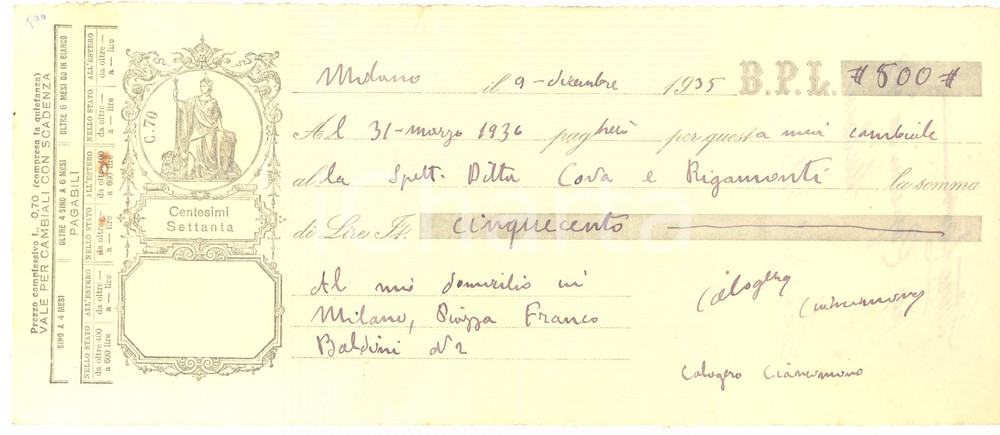 500
Prezzo complessivo L. 0,70 (compresa la quietanza)
VALE PER CAMBIALI CON SCADENZA
PAGABILI
SINO A 4 MESI
OLTRE 4 SINO A 6 MESI
OLTRE 6 MESI OD IN BIANCO
NELLO STATO
da oltre 400
a 600 lire
ALL'ESTERO
da oltre —
a — lire
NELLO STATO
da oltre —
a — lire
ALL'ESTERO
da oltre 400
a 600 lire
NELLO STATO
da oltre —
a — lire
ALL'ESTERO
da oltre —
a — lire
C. 70
Centesimi
Settanta
Milano il 9 - dicembre 1935 B.P.L. # 500 #
Al 31 - marzo 1936 pagherò per questa mia cambiale
alla Spett. Ditta Cova e Rigamonti la somma
di Lire It. cinquecento
Al mio domicilio in
Milano, Piazza Franco
Baldini N 2
Calogero
Calogero